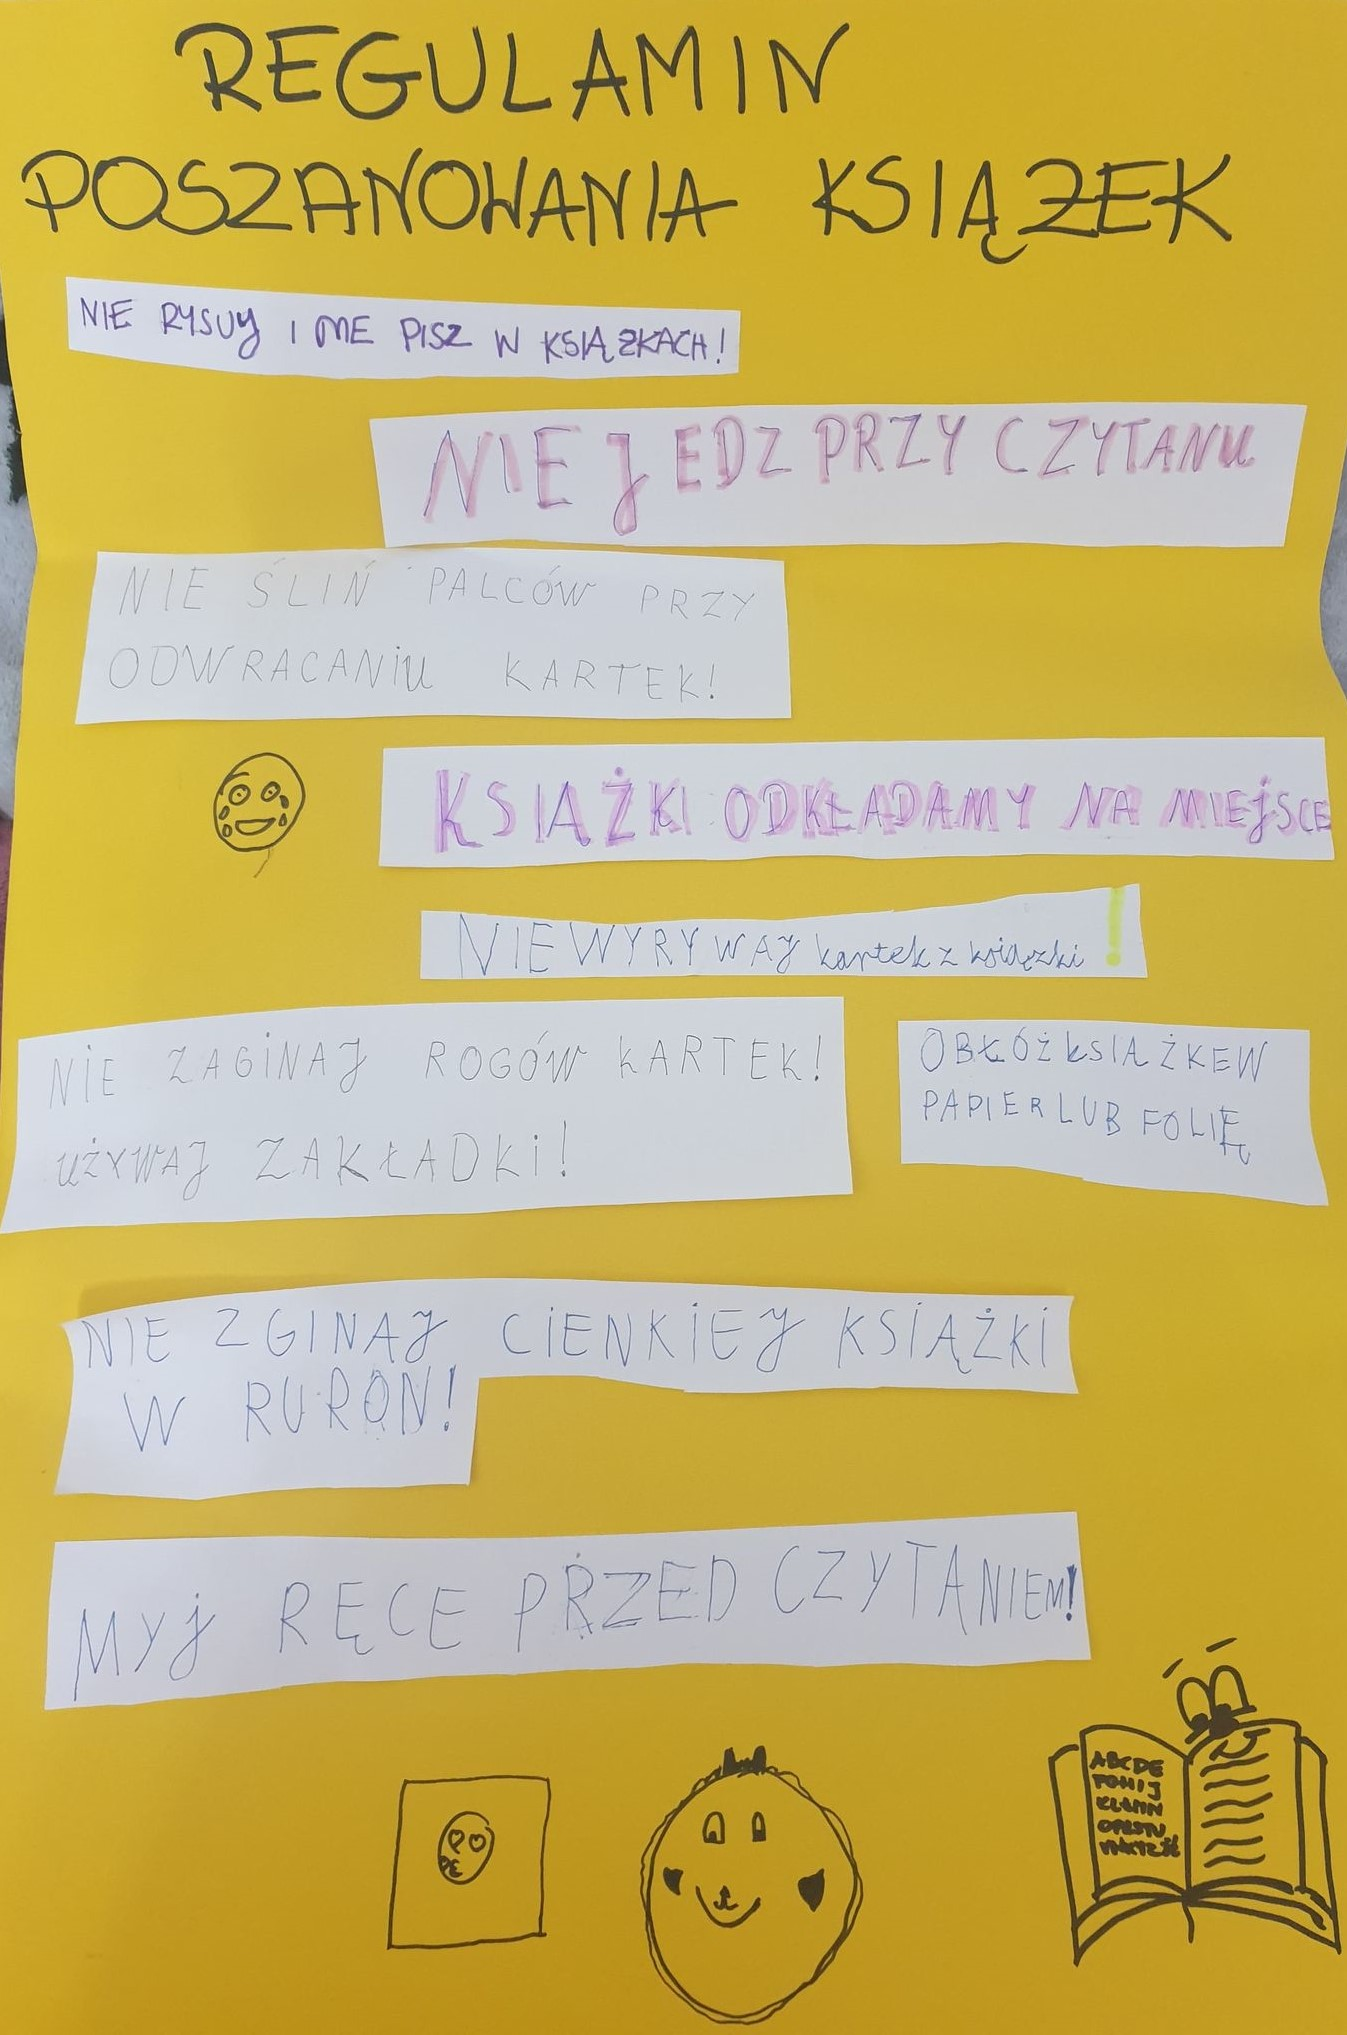 REGULAMIN
POSZANOWANIA KSIĄŻEK
NIE RYSUJ I NIE PISZ W KSIĄŻKACH!
NIE JEDZ PRZY CZYTANU
NIE ŚLIŃ PALCÓW PRZY
ODWRACANIU KARTEK!
KSIĄŻKI ODKŁADAMY NA MIEJSCE
NIE WYRYWAJ kartek z ksiązki!
NIE ZAGINAJ ROGÓW KARTEK!
UŻYWAJ ZAKŁADKI!
OBŁÓŻ KSIĄŻKE W
PAPIER LUB FOLIĘ
NIE ZGINAJ CIENKIEJ KSIĄŻKI
W RURON!
MYJ RĘCE PRZED CZYTANIEM!
ABCDE